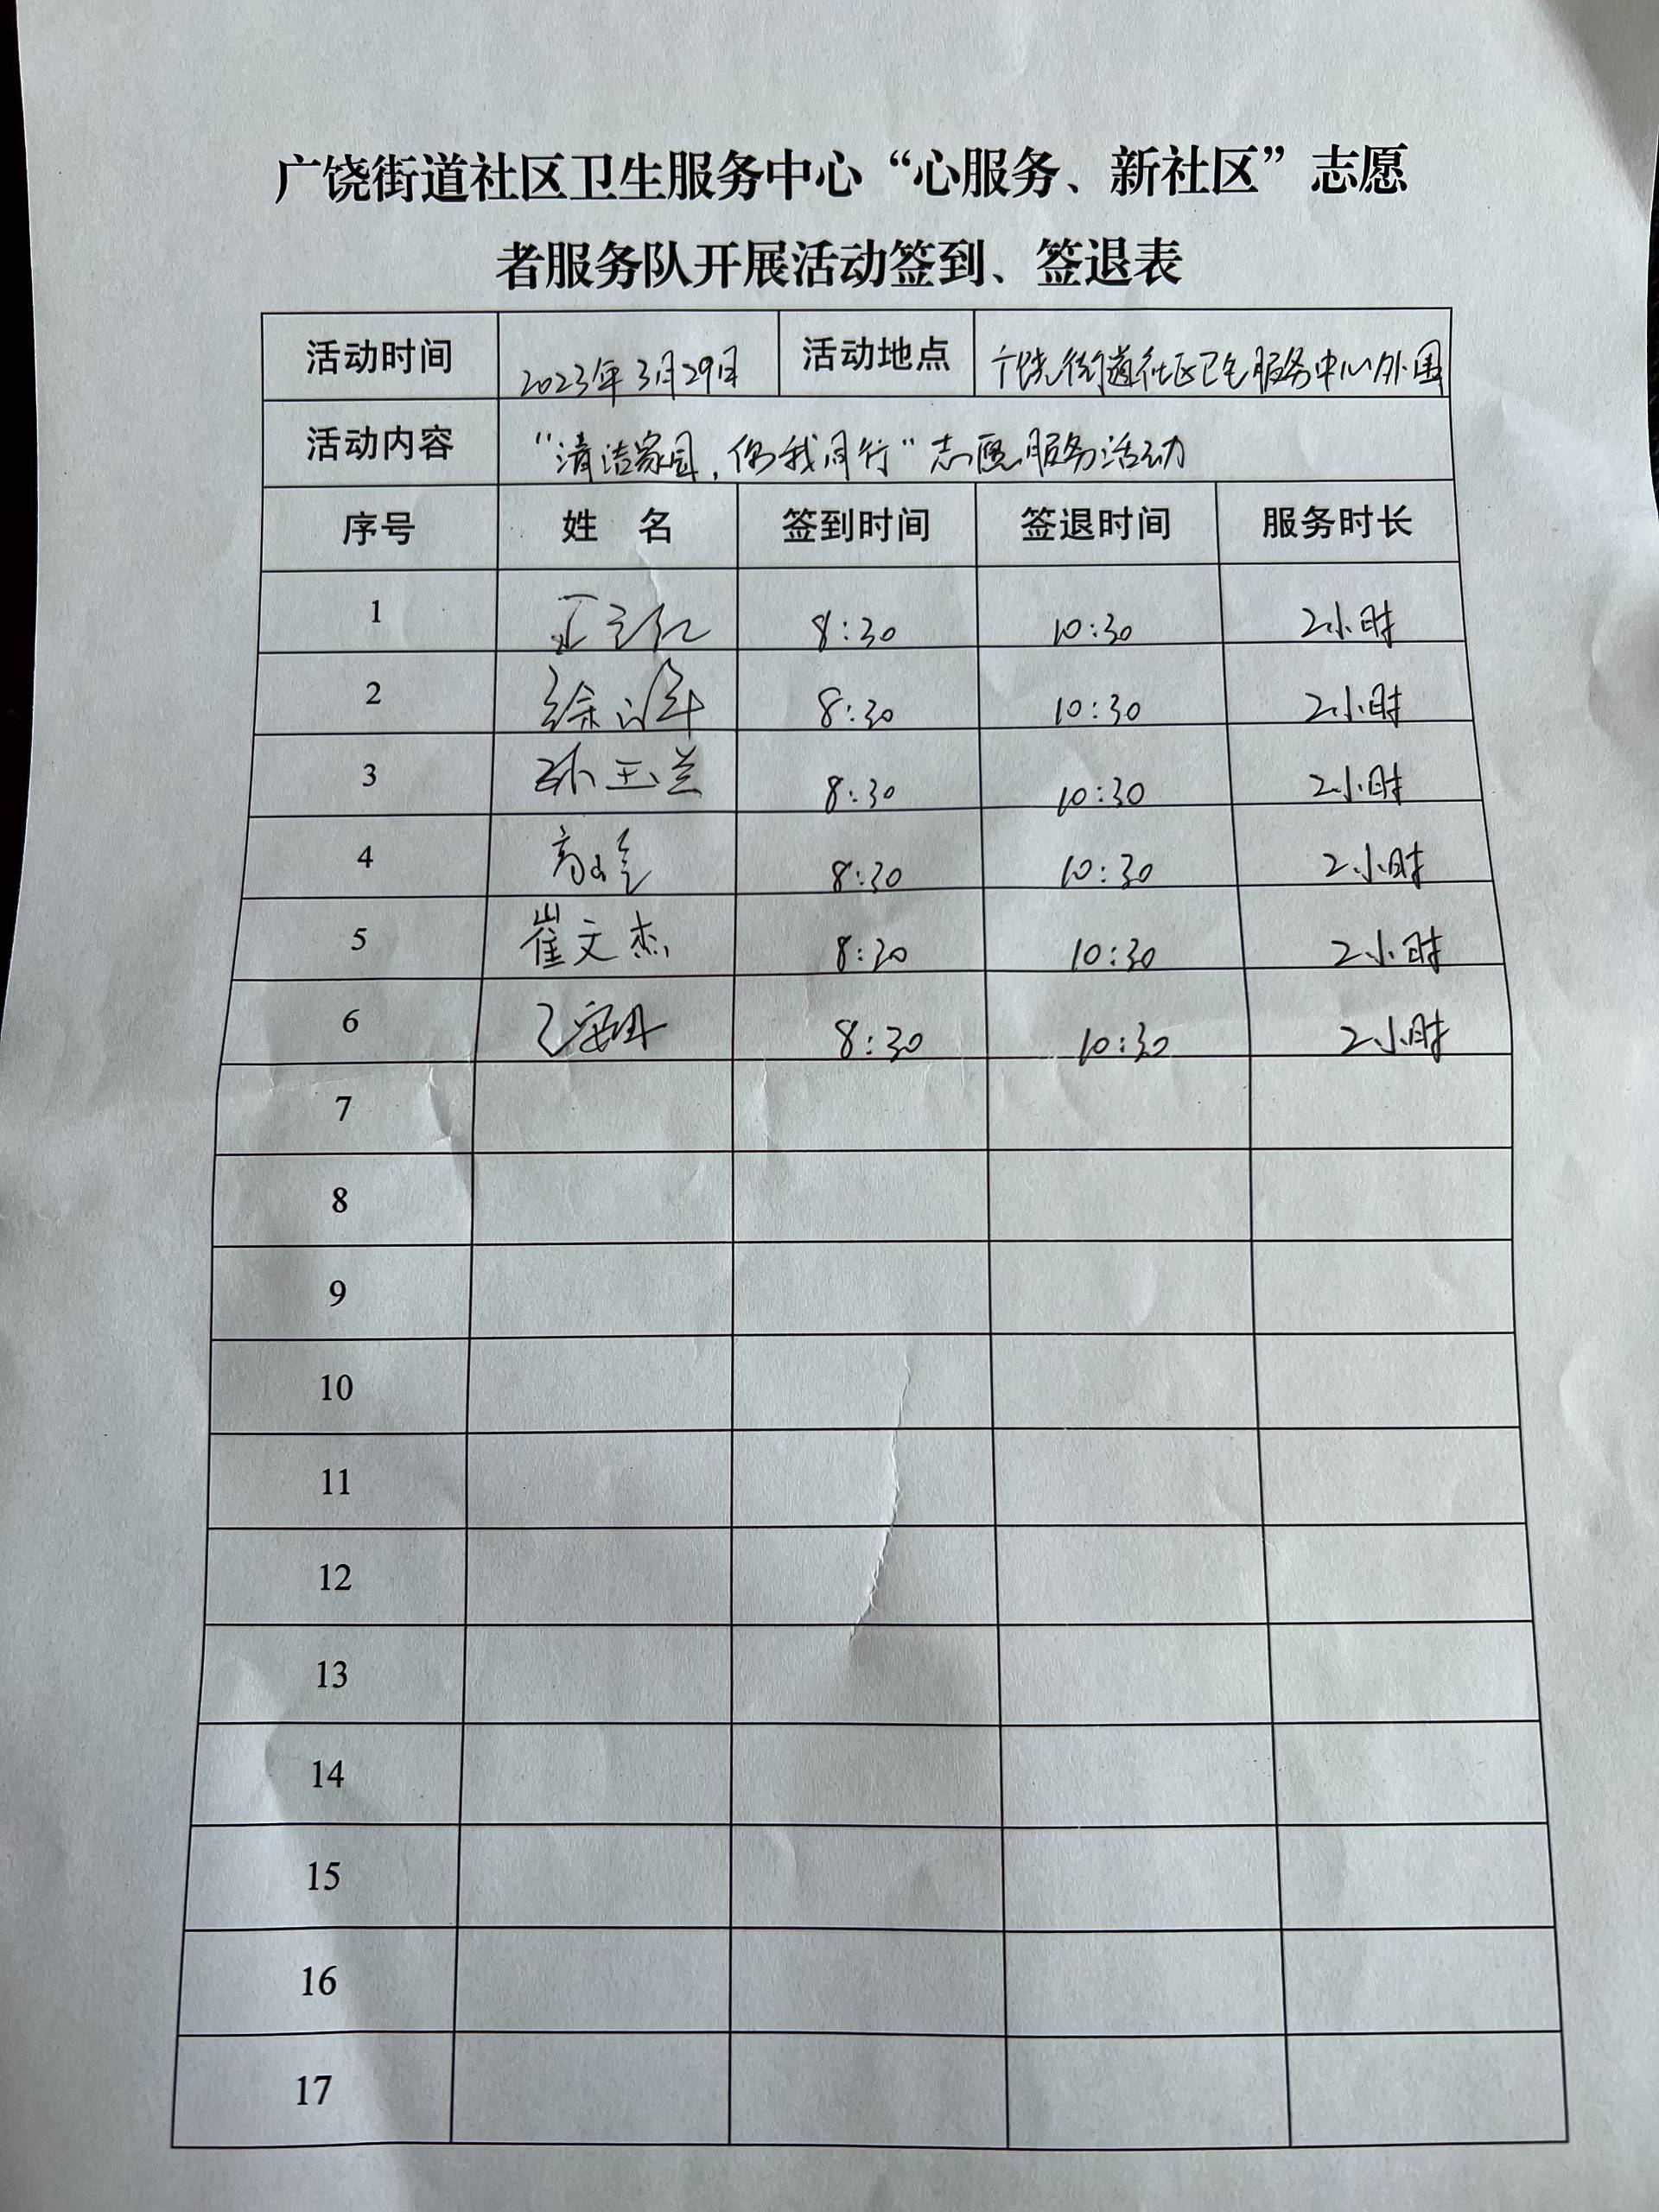 广饶街道社区卫生服务中心“心服务、新社区”志愿
者服务队开展活动签到、签退表
活动时间 2023年3月29日 活动地点 广饶街道社区卫生服务中心外围
活动内容 “清洁家园，你我同行”志愿服务活动
序号 姓 名 签到时间 签退时间 服务时长
1 8:30 10:30 2小时
2 徐 8:30 10:30 2小时
3 孙玉兰 8:30 10:30 2小时
4 高 8:30 10:30 2小时
5 崔文杰 8:30 10:30 2小时
6 8:30 10:30 2小时
7
8
9
10
11
12
13
14
15
16
17